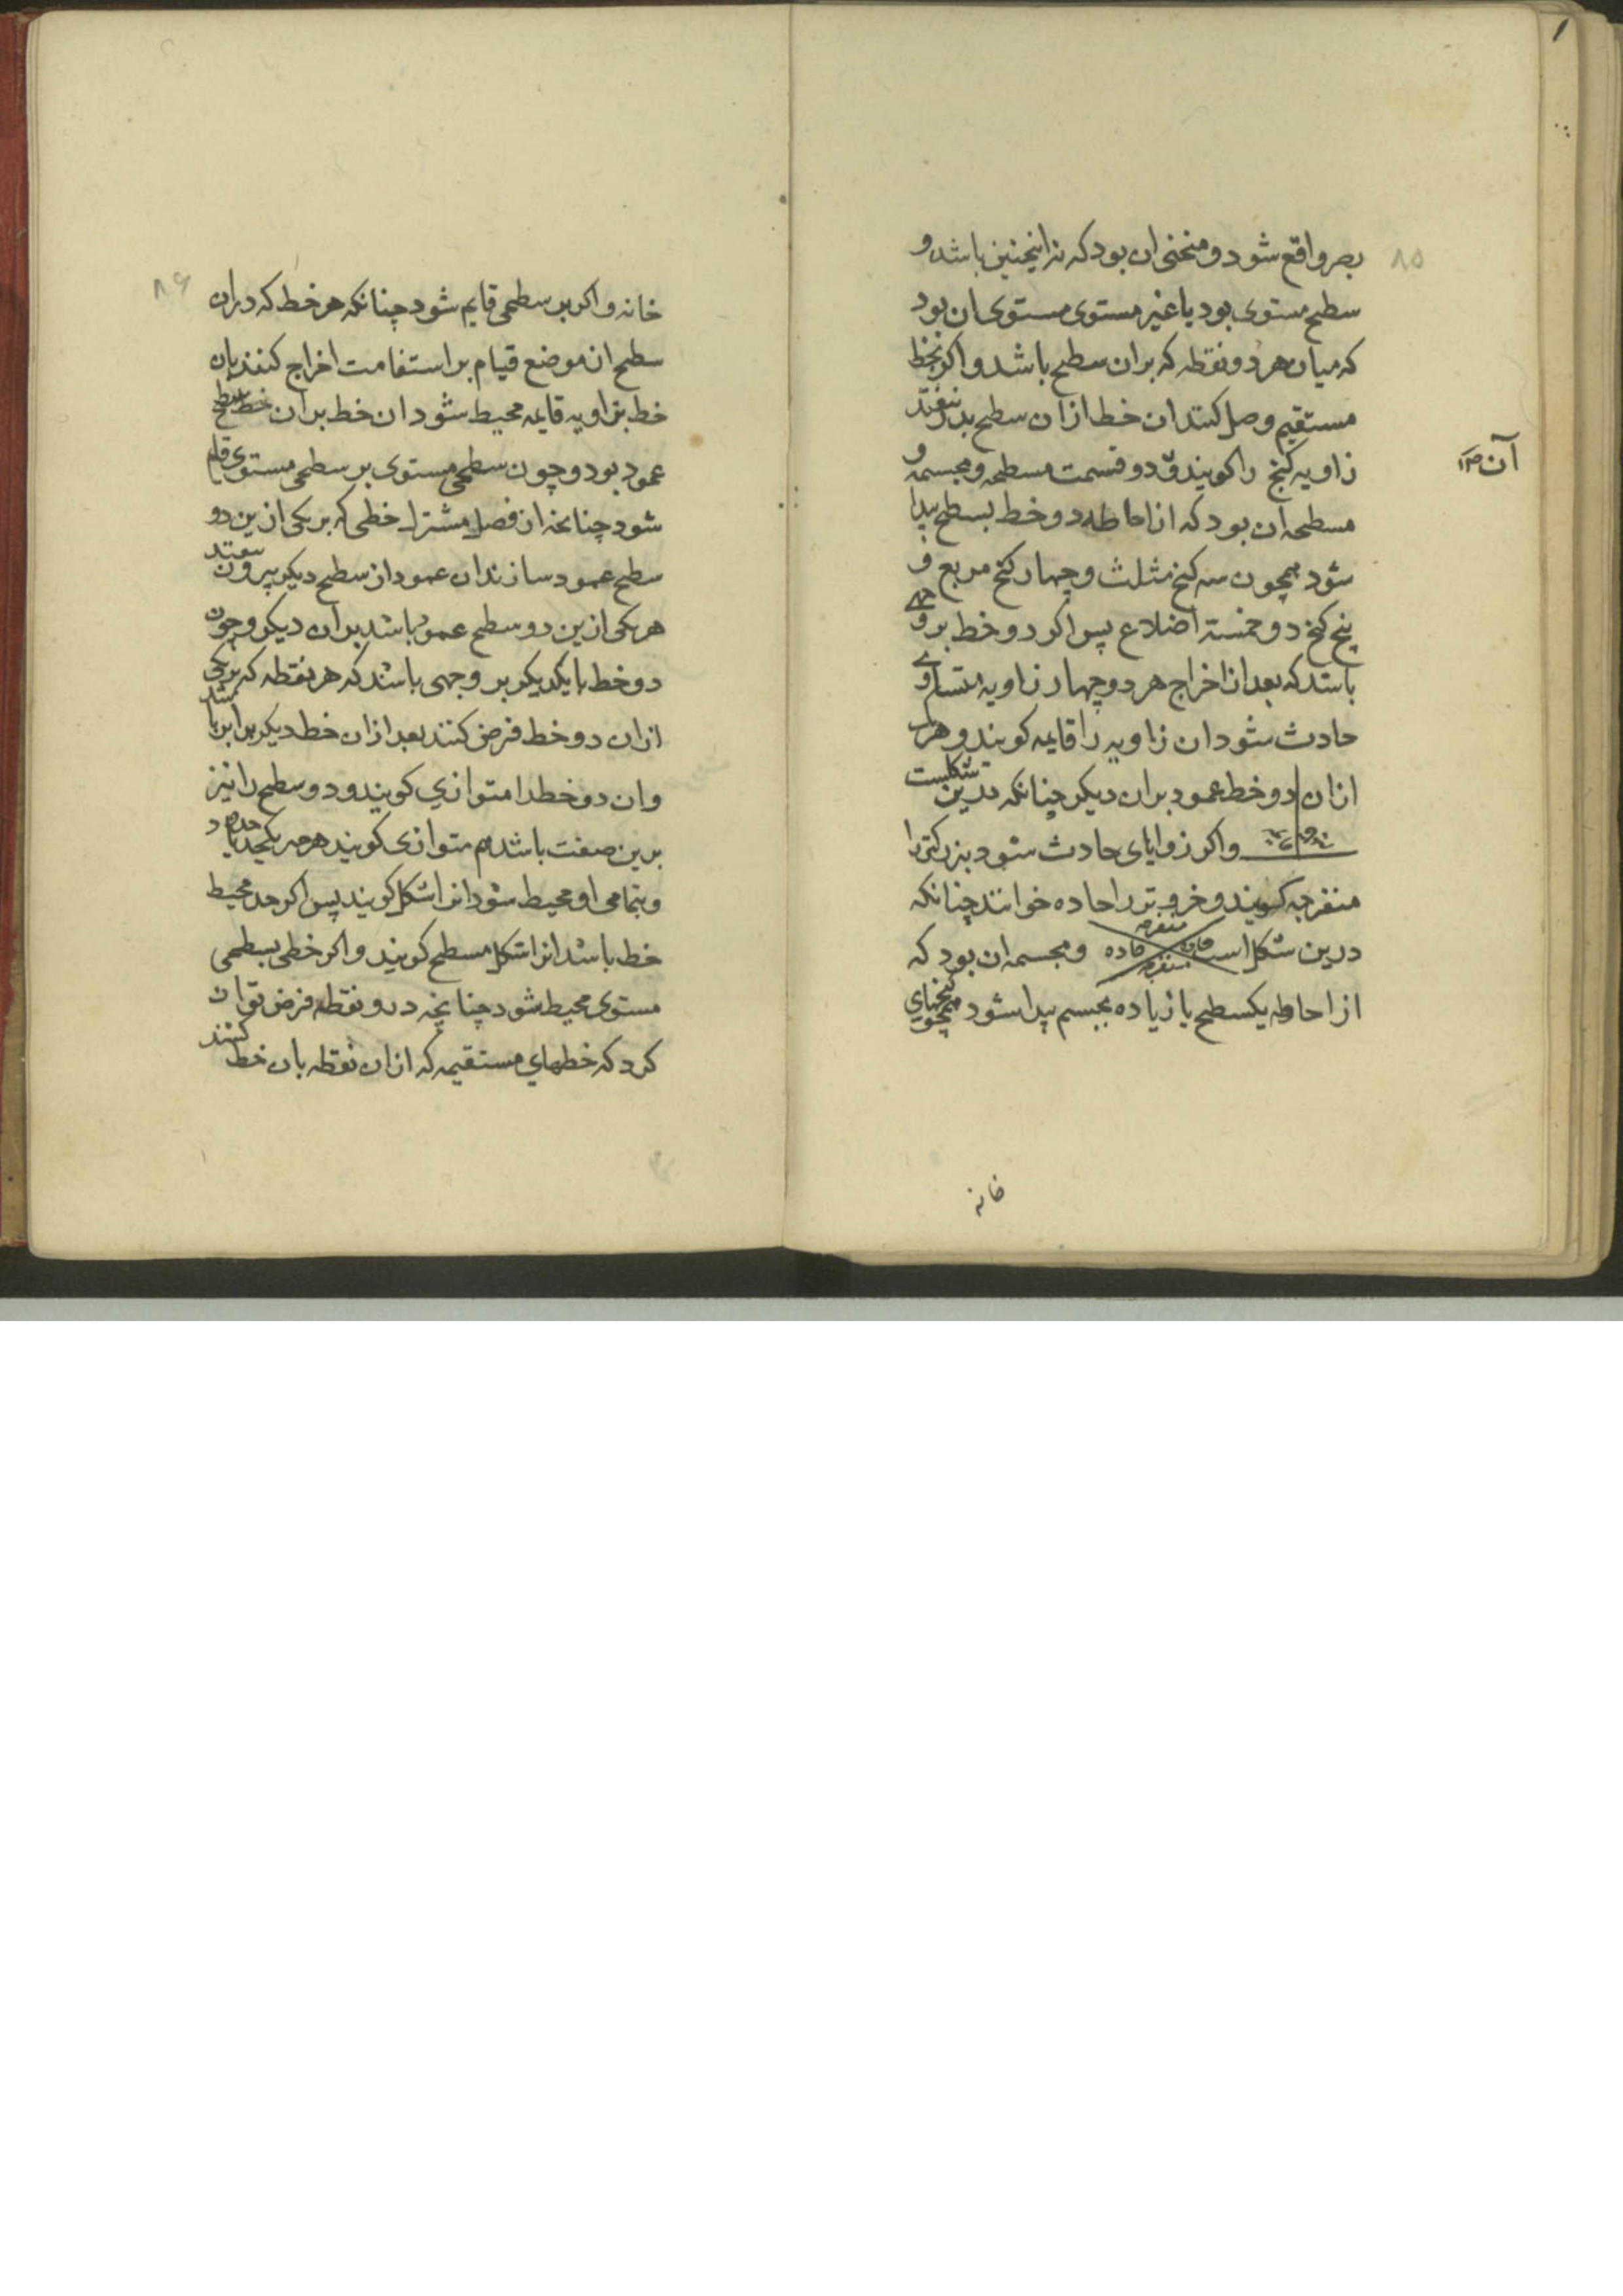 ۸۵
بصر واقع شود و منحنی ان بود که نه اینچنین باشد و
سطح مستوی بود یا غیر مستوی مستوی ان بود
که میان هر دو نقطه که بران سطح باشد و اکر بخط
مستقیم وصل کنند ان خط ازان سطح بدر نیفتد
زاویه کنج را کویند و دو قسمت مسطحه و مجسمه و
آن
مسطحه ان بود که از احاطه دو خط بسطح پیدا
شود همچون سه کنج مثلث و چهار کنج مربع و
پنج کنج دو خمسة اضلاع پس اکر دو خط بر وجهی
باشد که بعد از اخراج هر دو چهار زاویه متساوی
حادث شود ان زاویه را قایمه کویند و هر یک
ازان دو خط عمود بران دیکر چنانکه درین شکلست
واکر زوایای حادث شود بزرکتر را
منفرجه کویند و خرد تر را حاده خوانند چنانکه
درین شکل است
منفرجه
حاده
حاده
منفرجه
و مجسمه ان بود که
از احاطه یکسطح یا زیاده بجسم پیدا شود همچو کنجهای
خانه
۸۶
خانه و اکر بر سطحی قایم شود چنانکه هر خط که دران
سطح از موضع قیام بر استقامت اخراج کنند بان
خط بزاویه قایمه محیط شود ان خط بران خط سطح
عمود بود و چون سطحی مستوی بر سطحی مستوی قایم
شود چنانچه از فصل مشترک خطی که بر یکی ازین دو
سطح عمود سازند ان عمود از سطح دیکر بیرون نیفتد
هر یکی ازین دو سطح عمود باشد بران دیکر و چون
دو خط با یکدیکر بر وجهی باشند که هر نقطه که بر یکی
ازان دو خط فرض کنند بعد ازان خط دیکر برابر باشد
وان دو خط را متوازي کویند و دو سطح را نیز
برین صفت باشد هم متوازی کویند هر چه یکحد یا حدود
و بتمامی او محیط شود انرا شکل کویند پس اکر حد محیط
خط باشد انرا شکل مسطح کویند و اکر خطی بسطحی
مستوی محیط شود چنانچه درو نقطه فرض توان
کرد که خطهاي مستقیمه که ازان نقطه بان خط کشند